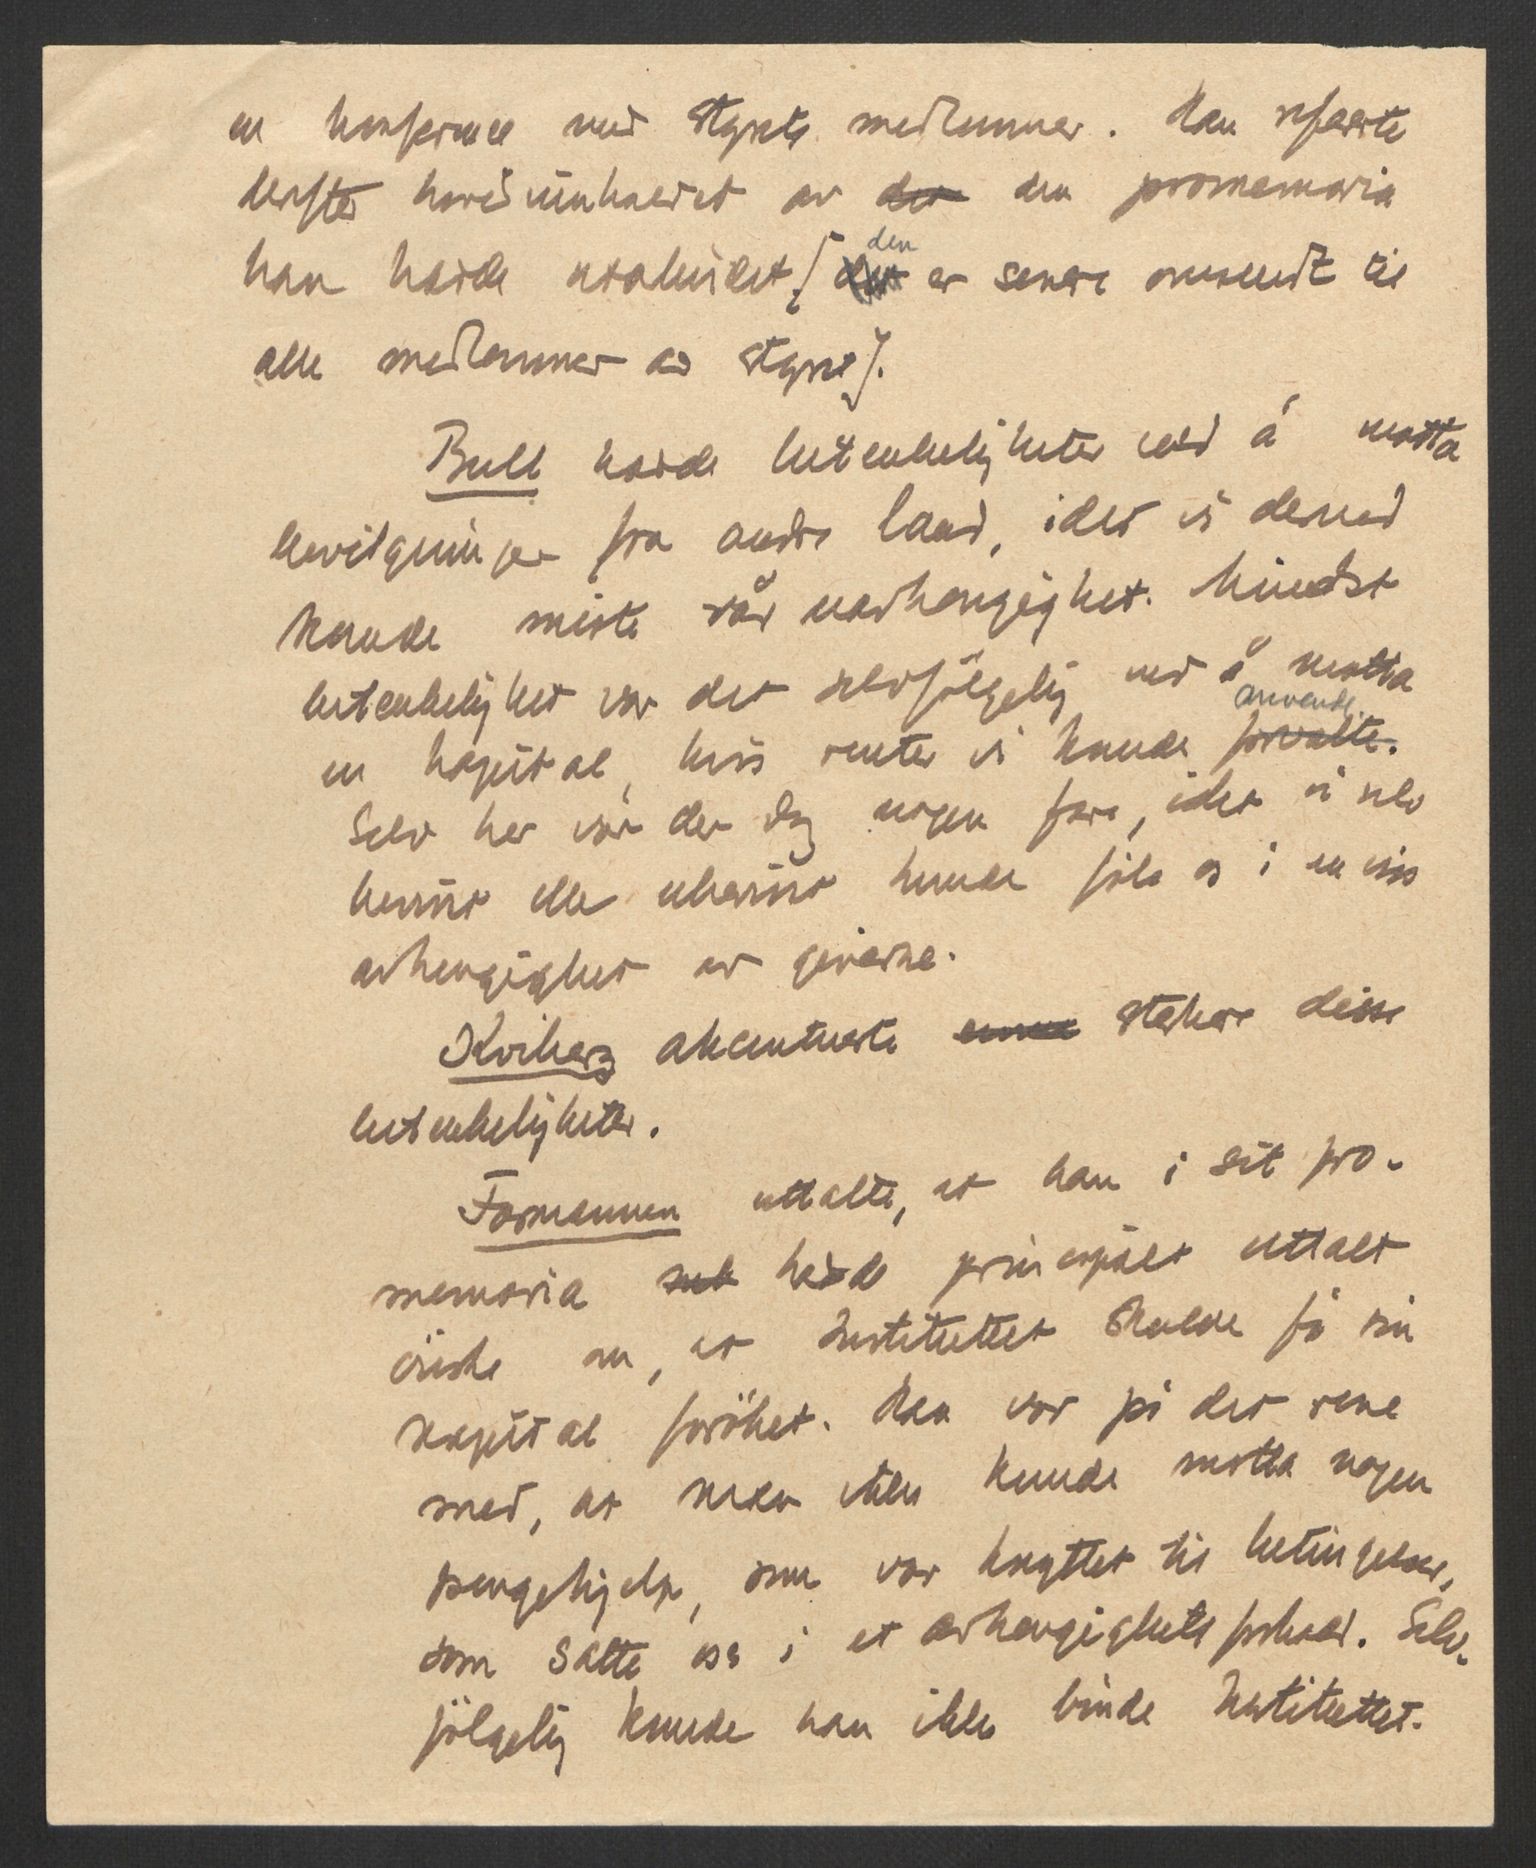 en konferanse med styrets medlemmer. Han refererte
derefter hovedinnholdet av det den promemoria
han hadde utarbeidet [den er senere omsendt til
alle medlemmer av styret].
Bull hadde betenkeligheter ved å motta
bevilgninger fra andre land, idet vi dermed
kunde miste vår uavhengighet. Mindst
betenkelighet var det selvfölgelig ved å motta
en kapital, hvis renter vi kunde forvalte. anvende.
Selv her var der dog nogen fare, idet vi selv
bevist eller ubevist kunde föle os i en viss
avhengighet av giverne.
Kviberg akcentuerte ennu sterkere disse
betenkeligheter.
Formannen uttalte, at han i sit pro-
memoria hadde principalt uttalt
önske om, at Instituttet skulde få sin
kapital foröket. Han var på det rene
med, at man ikke kunde motta nogen
pengehjelp, som var knyttet til betingelser,
som satte oss i et avhengighetsforhold. Selv-
fölgelig kunde han ikke binde Instituttet.